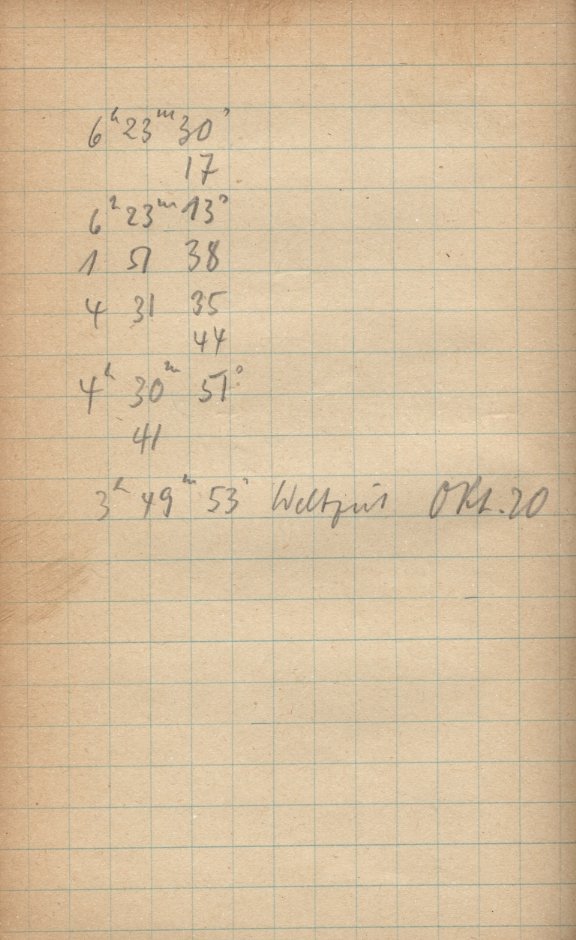 6ʰ 23ᵐ 30ˢ
17
6ʰ 23ᵐ 13ˢ
1 51 38
4 31 35
44
4ʰ 30ᵐ 51ˢ
41
3ʰ 49ᵐ 53ˢ Weltzeit Okt. 20